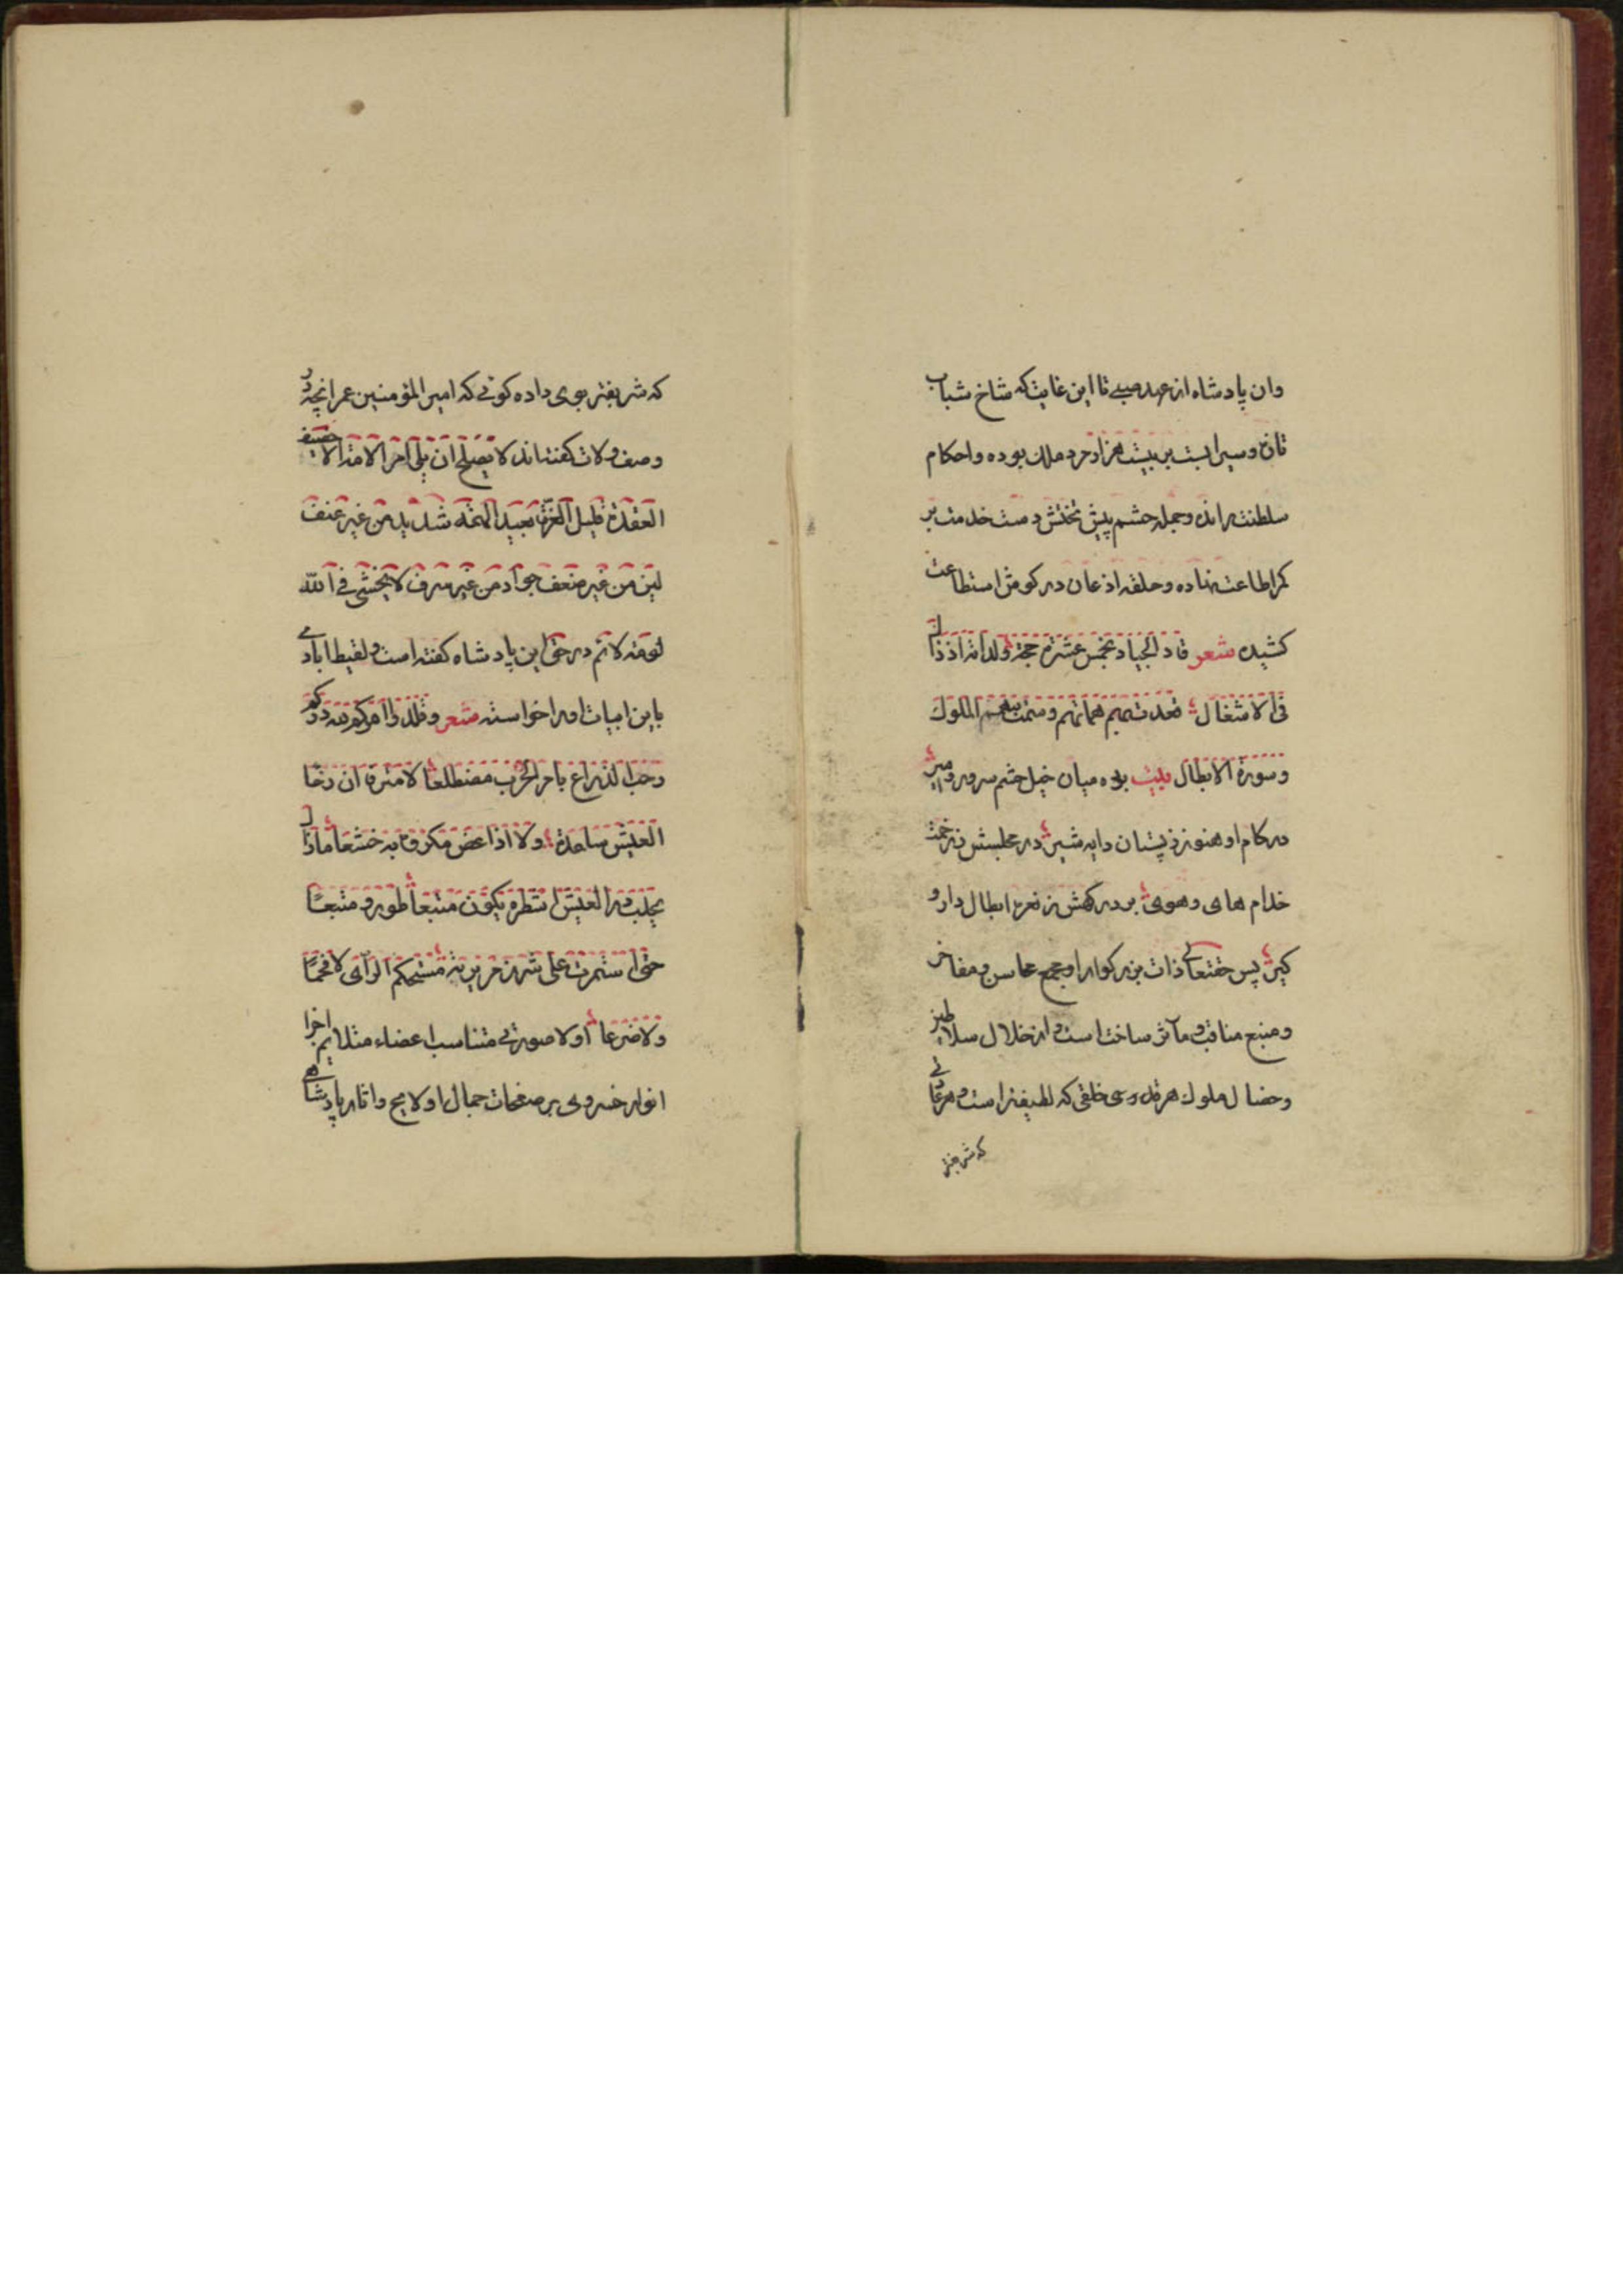 وان پادشاه از عهد صبی تا این غایت که شاخ شباب
تازه و سیراب است بر بیست هزار مرد ملک بوده و احکام
سلطنت رانده و جمله حشم پیش تختش دست خدمت بر
کمر اطاعت نهاده و حلقه اذعان در کوش استطاعت
کشیده شعر قاد الجیاد بخمس عشرة حجة ولداته اذ ذاك
فی الاشغال قعدت بهم هماتهم وسمت به همم الملوك
وسورة الابطال بیت بوده میان خیل حشم سرور و میر
در کام او هنوز ز پستان دایه شیر در مجلسش ز زحمت
خدام های و هوی بر درکهش ز نعره ابطال دار و
کیر پس حقتعالی ذات بزرکوار او مجمع محاسن و مفاخر
و منبع مناقب و مآثر ساخته است و از خلال سلاطین
و خصال ملوك هر خلقی که لطیفتر است و هر عادتی
که شریفتر
که شریفتر بوی داده کوئی که امیر المؤمنین عمر انچه در
وصف ولات کفته اند لا یصلح ان یلی امر الامة الا حصیف
العقدة قلیل الغرة بعید الهمة شدید من غیر عنف
لین من غیر ضعف جواد من غیر سرف لا یخشی فی الله
لومة لائم در حق این پادشاه کفته است و لقیط ایادی
باین ابیات اورا خواسته شعر وقلدوا امرکم لله درکم
رحب الذراع بامر الحرب مضطلعا لا مترفا ان رخا
العیش ساعده ولا اذا عض مکروه به خشعا ما زال
یحلب در العیش اشطره یکون متبعا طورا و متبعا
حتی استمرت علی شزر مریرته مستحکم الرأی لا قحما
ولا ضرعا اولا صورتی متناسب اعضاء متلایم اجزا
انوار خسروی بر صفحات جمال او لایح و اثار پادشاهی